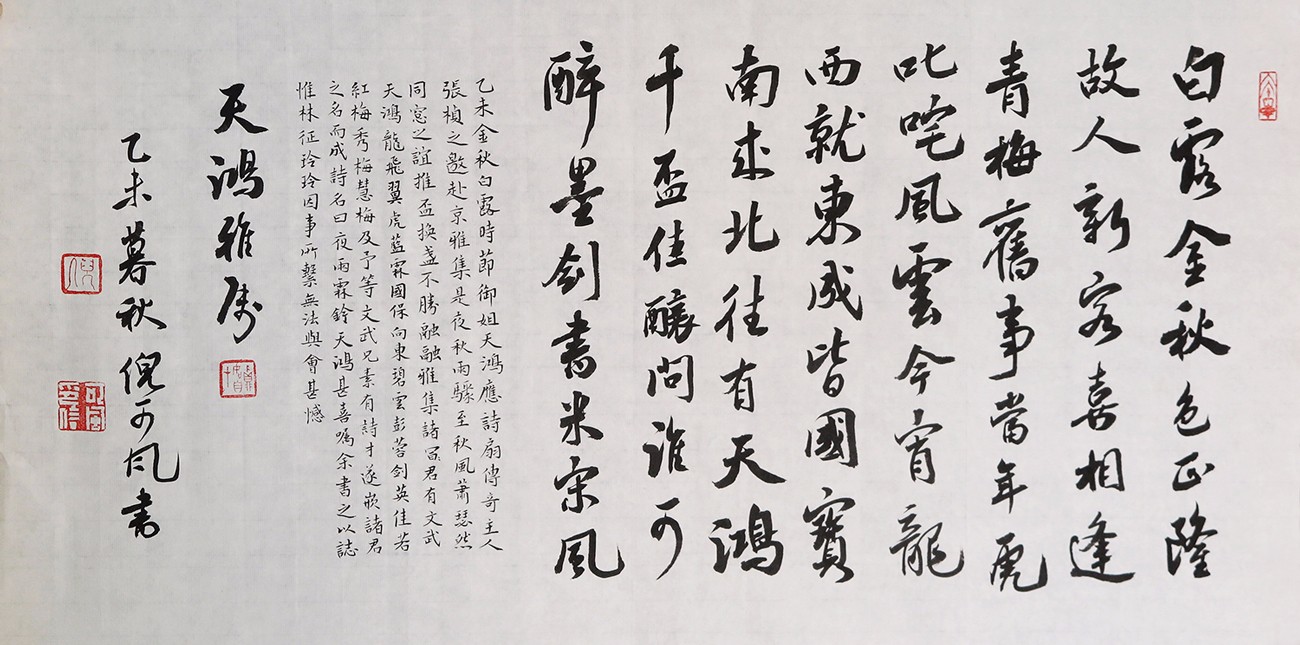 白露金秋色正隆
故人新客喜相逢
青梅舊事當年虎
叱咤風雲今宵龍
西就東成皆國寶
南來北往有天鴻
千盃佳釀問誰可
醉墨劍書米宋風
乙未金秋白露時節御姐天鴻應詩扇傳奇主人
張楨之邀赴京雅集是夜秋雨驟至秋風蕭瑟然
同窓之誼推盃換盞不勝融融雅集諸君有文武
天鴻龍飛翼虎藍霖國保向東碧雲彭蓉劍英佳若
紅梅秀梅慧梅及予等文武兄素有詩才遂嵌諸君
之名而成詩名曰夜雨霖鈴天鴻甚喜囑余書之以誌
惟林征玲玲因事所繫無法與會甚憾
天鴻雅屬
乙未暮秋倪可風書